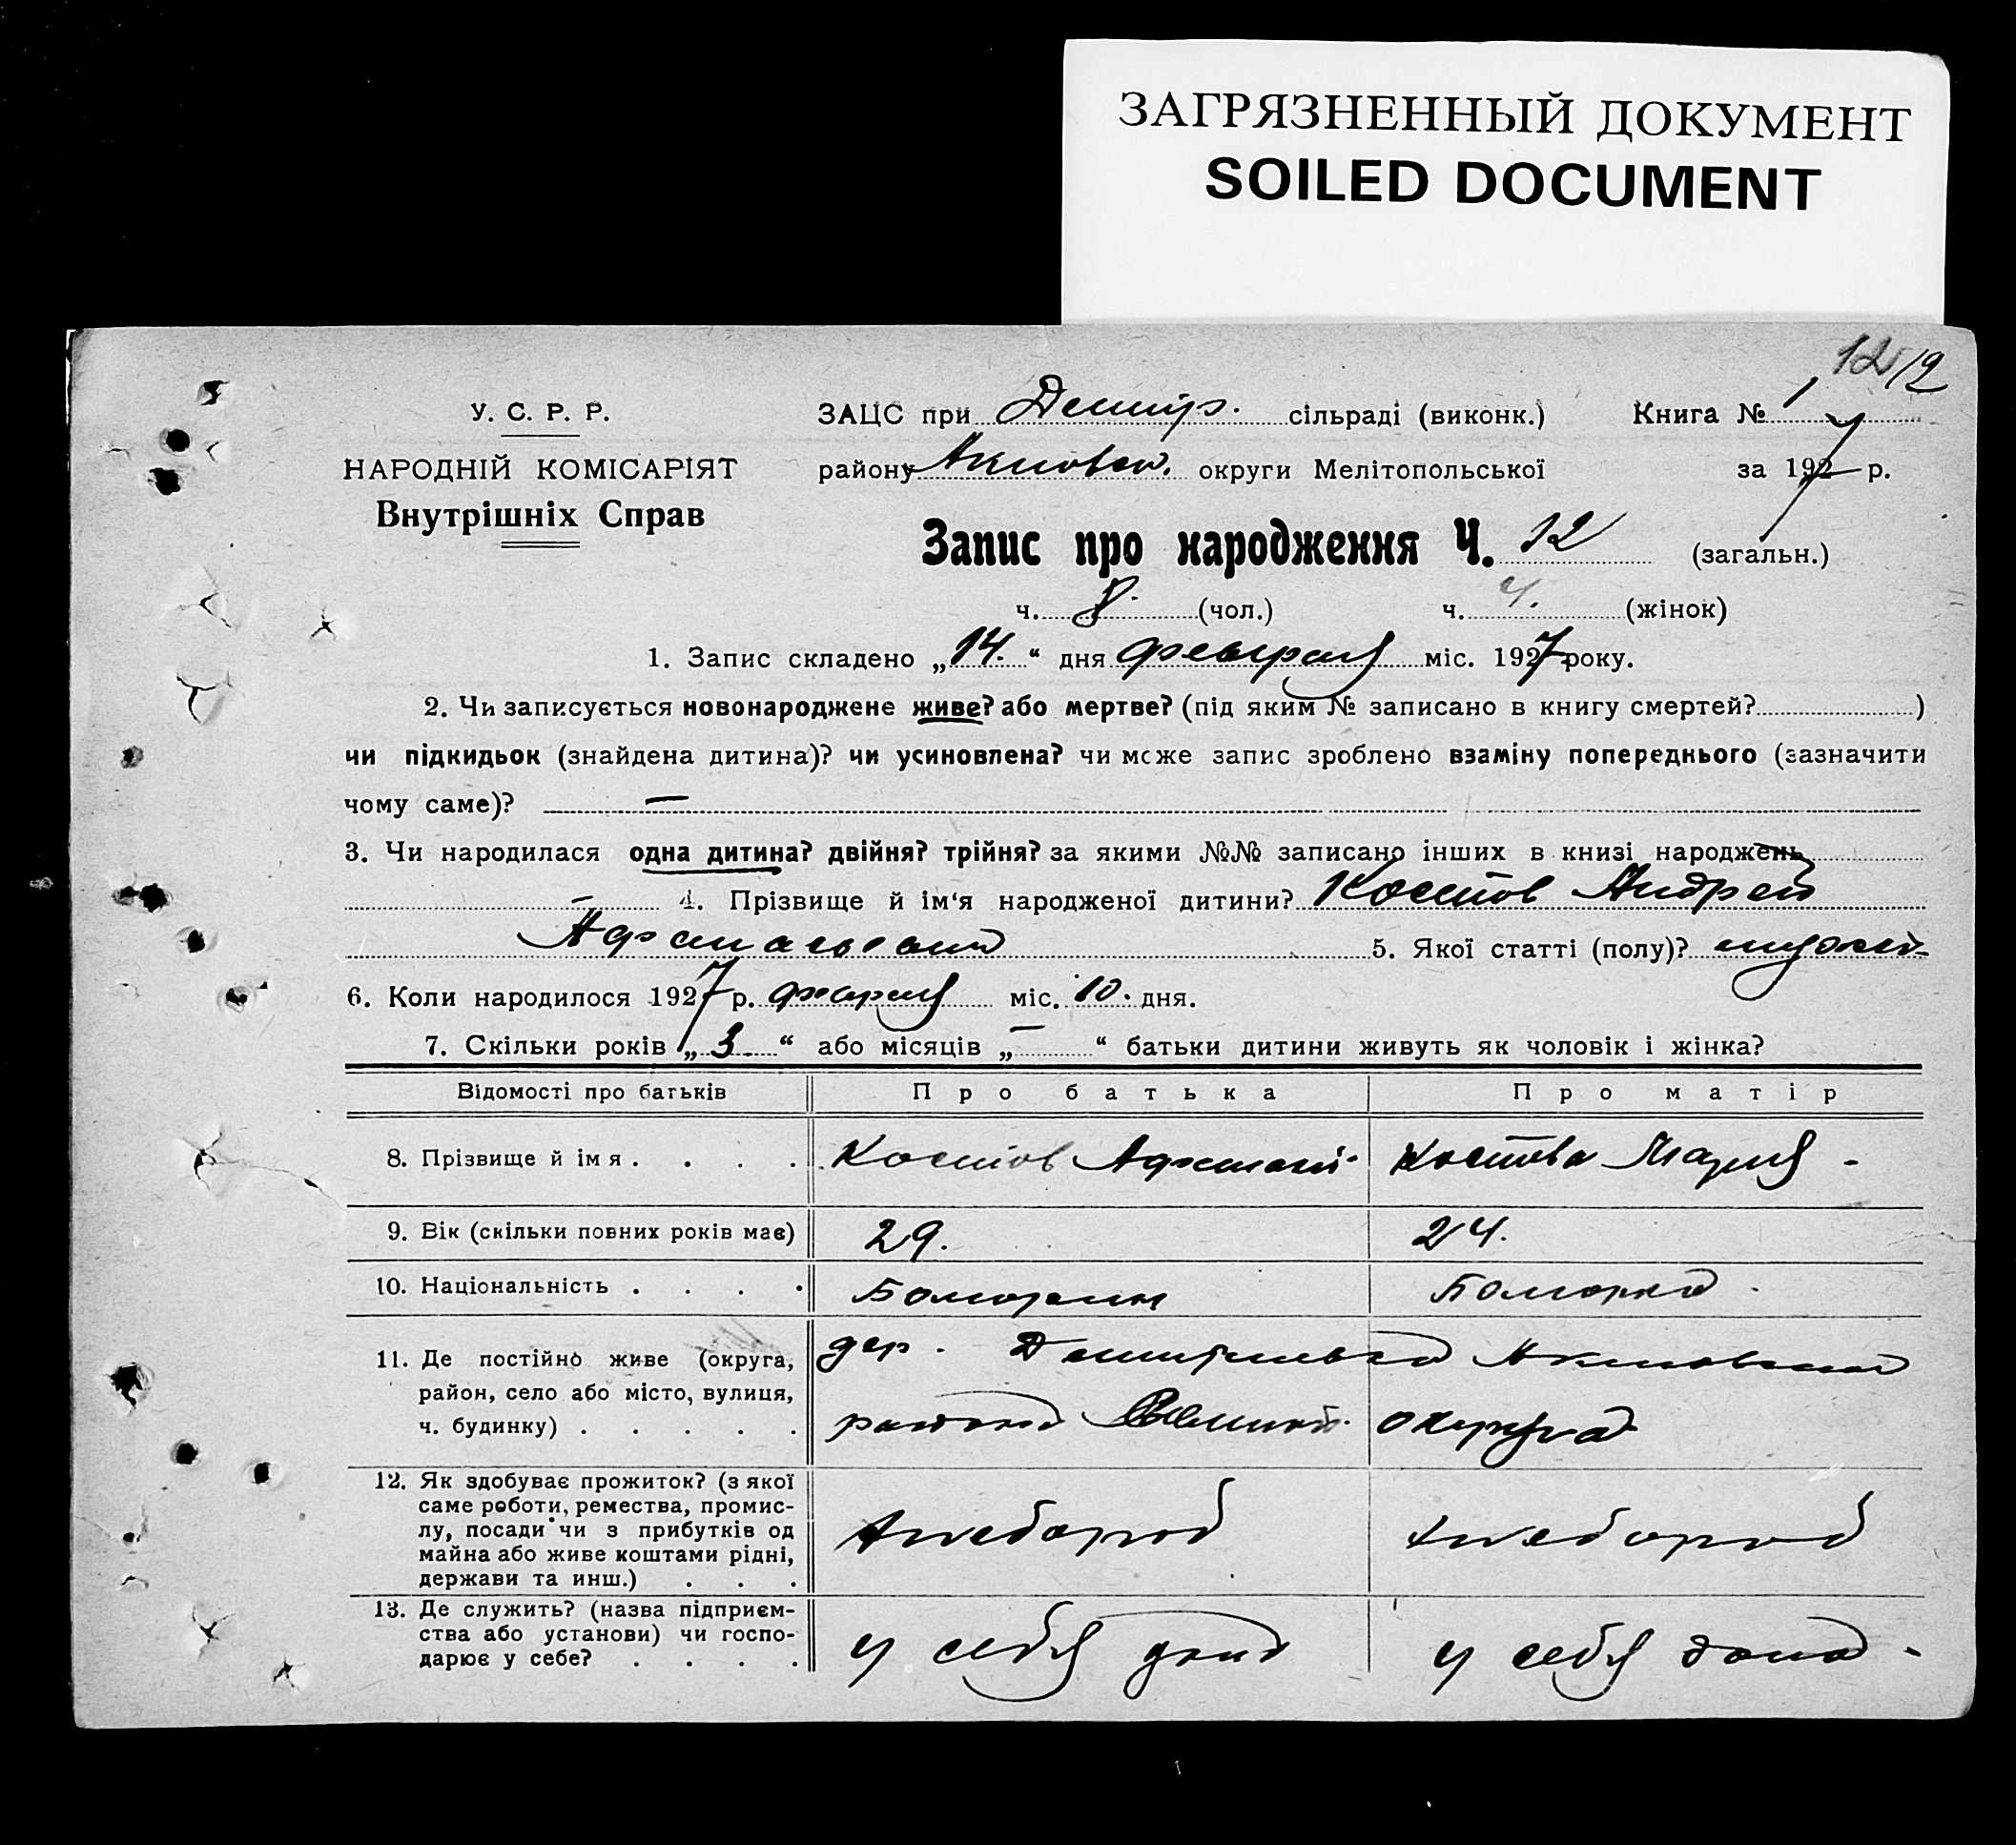 ЗАГРЯЗНЕННЫЙ ДОКУМЕНТ
SOILED DOCUMENT
12 12
У. С. Р. Р.
НАРОДНІЙ КОМІСАРІЯТ
Внутрішніх Справ
ЗАЦС при Дмитр. сільраді (виконк.) Книга № 1
району Акимовск. округи Мелітопольської за 1927 р.
Запис про народження Ч. 12 (загальн.)
ч. 8 (чол.) ч. 4. (жінок)
1. Запис складено „14.“ дня февраля міс. 1927 року.
2. Чи записується новонароджене живе? або мертве? (під яким № записано в книгу смертей? )
чи підкидьок (знайдена дитина)? чи усиновлена? чи може запис зроблено взаміну попереднього (зазначити
чому саме)? —
3. Чи народилася одна дитина? двійня? трійня? за якими №№ записано інших в книзі народжень
— 4. Прізвище й ім‘я народженої дитини? Костов Андрей
5. Якої статті (полу)?
6. Коли народилося 1927 р. февраля міс. 10. дня.
7. Скільки років „3.“ або місяців „—“ батьки дитини живуть як чоловік і жінка?
Відомості про батьків Про батька Про матір
8. Прізвище й імя . . . . Костов Афанасий Костова Мария -
9. Вік (скільки повних років має) 29. 24.
10. Національність . . . . Болгарин Болгарка
11. Де постійно живе (округа,
район, село або місто, вулиця,
ч. будинку) . . . . .
дер. Дмитриевка Акимовского
района Мелитоп. округа
12. Як здобуває прожиток? (з якої
саме роботи, ремества, промис-
лу, посади чи з прибутків од
майна або живе коштами рідні,
держави та инш.) . . .
Хлебороб Хлебороб
13. Де служить? (назва підприєм-
ства або установи) чи госпо-
дарює у себе? . . . .
у себя дома у себя дома -